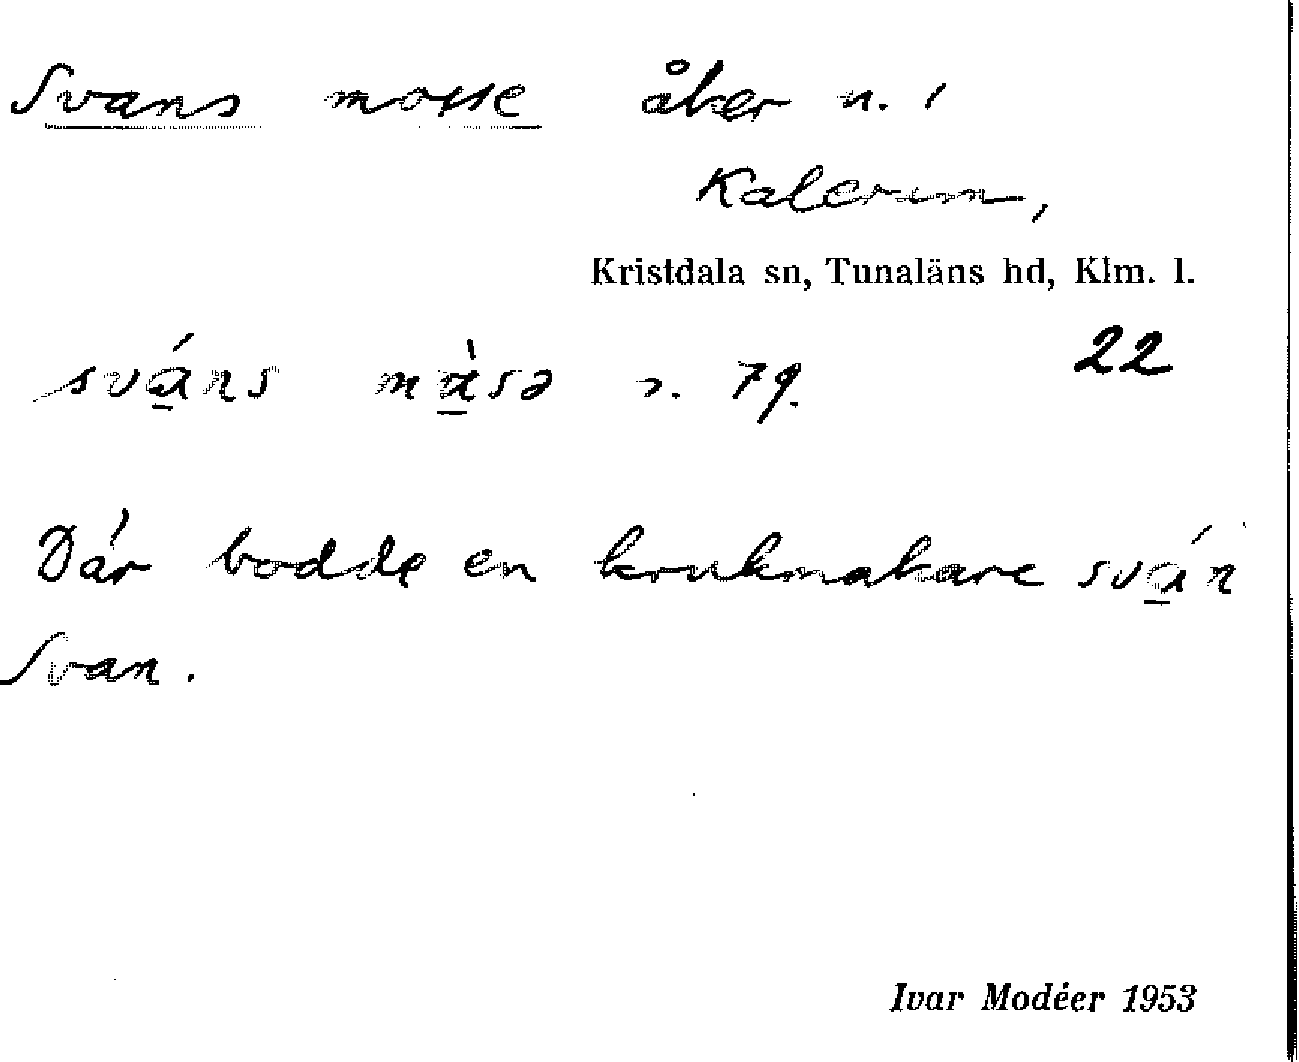 Svans mosse åker n. i
Kalerum,
Kristdala sn, Tunaläns hd, Klm. l.
svá̱ns mà̱sə 79. 22
Där bodde en krukmakare svá̱n
Svan.
Ivar Modéer 1953